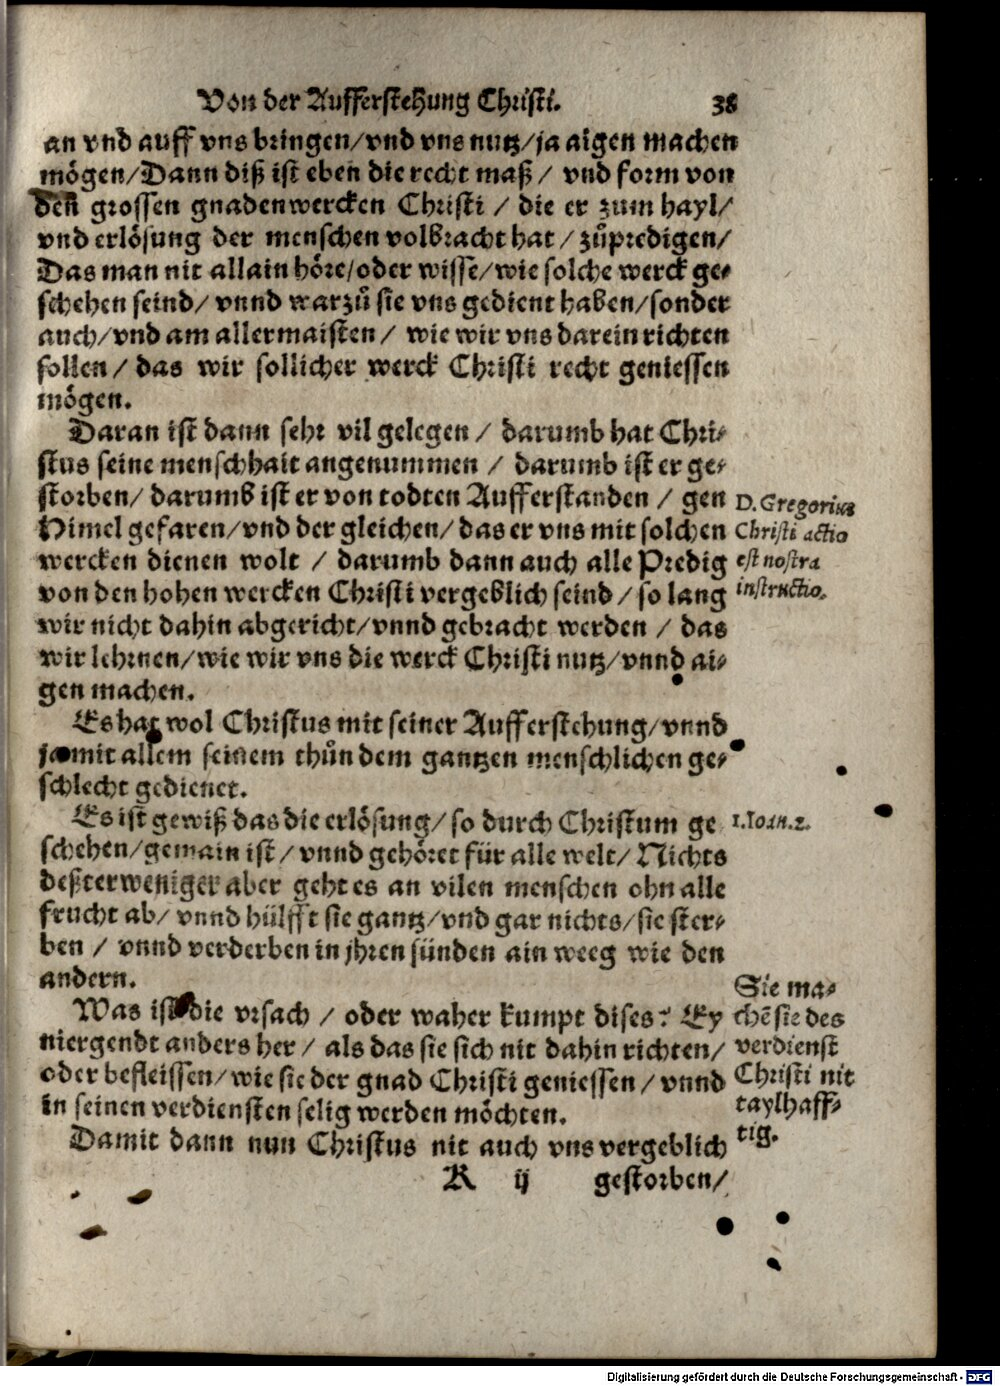 Von der Aufferstehung Christi. 38
an vnd auff vns bringen/vnd vns nutz/ja aigen machen
mögen/Dann diß ist eben die recht maß/ vnd form von
den grossen gnadenwercken Christi / die er zum hayl/
vnd erlösung der menschen volbracht hat / zůpredigen/
Das man nit allain höre/oder wisse/wie solche werck ge-
schehen seind/ vnnd warzů sie vns gedient haben/sonder
auch/vnd am allermaisten / wie wir vns darein richten
sollen / das wir sollicher werck Christi recht geniessen
mögen.
Daran ist dann sehr vil gelegen / darumb hat Chri-
stus seine menschhait angenummen / darumb ist er ge-
storben/ darumb ist er von todten Aufferstanden / gen
Himel gefaren/vnd der gleichen/das er vns mit solchen
wercken dienen wolt / darumb dann auch alle Predig
von den hohen wercken Christi vergeblich seind / so lang
wir nicht dahin abgericht/vnnd gebracht werden / das
wir lehrnen/wie wir vns die werck Christi nutz/vnnd ai-
gen machen.
D. Gregorius
Christi actio
est nostra
instructio.
Es hat wol Christus mit seiner Aufferstehung/vnnd
ja mit allem seinem thůn dem gantzen menschlichen ge-
schlecht gedienet.
Es ist gewiß das die erlösung/ so durch Christum ge
schehen/gemain ist / vnnd gehöret für alle welt/ Nichts
deßterweniger aber geht es an vilen menschen ohn alle
frucht ab/ vnnd hülfft sie gantz/vnd gar nichts/sie ster-
ben / vnnd verderben in jhren sünden ain weeg wie den
andern.
1.Ioan.2.
Was ist die vrsach / oder waher kumpt dises? Ey
niergendt anders her / als das sie sich nit dahin richten/
oder befleissen/wie sie der gnad Christi geniessen / vnnd
in seinen verdiensten selig werden möchten.
Sie ma-
chē sie des
verdienst
Christi nit
taylhaff-
tig.
Damit dann nun Christus nit auch vns vergeblich
K ij gestorben/
Digitalisierung gefördert durch die Deutsche Forschungsgemeinschaft - DFG